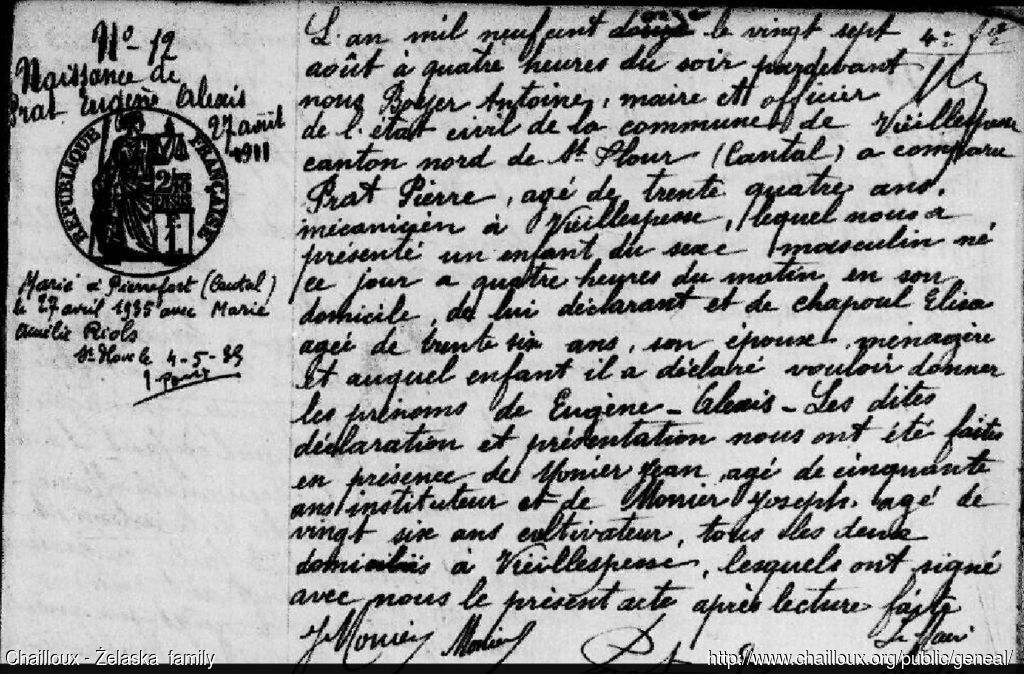 No 12
Naissance de
Prat Eugène Alexis
27 août
1911
RÉPUBLIQUE FRANÇAISE
Marié à Pierrefort (Cantal)
le 27 avril 1935 avec Marie
Amélie Riols
St Flour le 4-5-35
onze
L'an mil neuf cent douze le vingt sept
août à quatre heures du soir pardevant
nous Boyer Antoine, maire et officier
de l'état civil de la commune de Vieillespesse
canton nord de St Flour (Cantal) a comparu
Prat Pierre, agé de trente quatre ans,
mécanicien à Vieillespesse, lequel nous a
présenté un enfant du sexe masculin né
ce jour a quatre heures du matin en son
domicile, de lui déclarant et de chapoul Elisa
agée de trente six ans, son épouse, ménagère
et auquel enfant il a déclaré vouloir donner
les prénoms de Eugène-Alexis-Les dites
déclaration et présentation nous ont été faites
en présence de Monier Jean agé de cinquante
ans instituteur et de Monier Joseph, agé de
vingt six ans cultivateur, tous les deux
domiciliés à Vieillespesse, lesquels ont signé
avec nous le présent acte après lecture faite
J Monier Monier Le Maire
Chailloux - Żelaska family
http://www.chailloux.org/public/geneal/